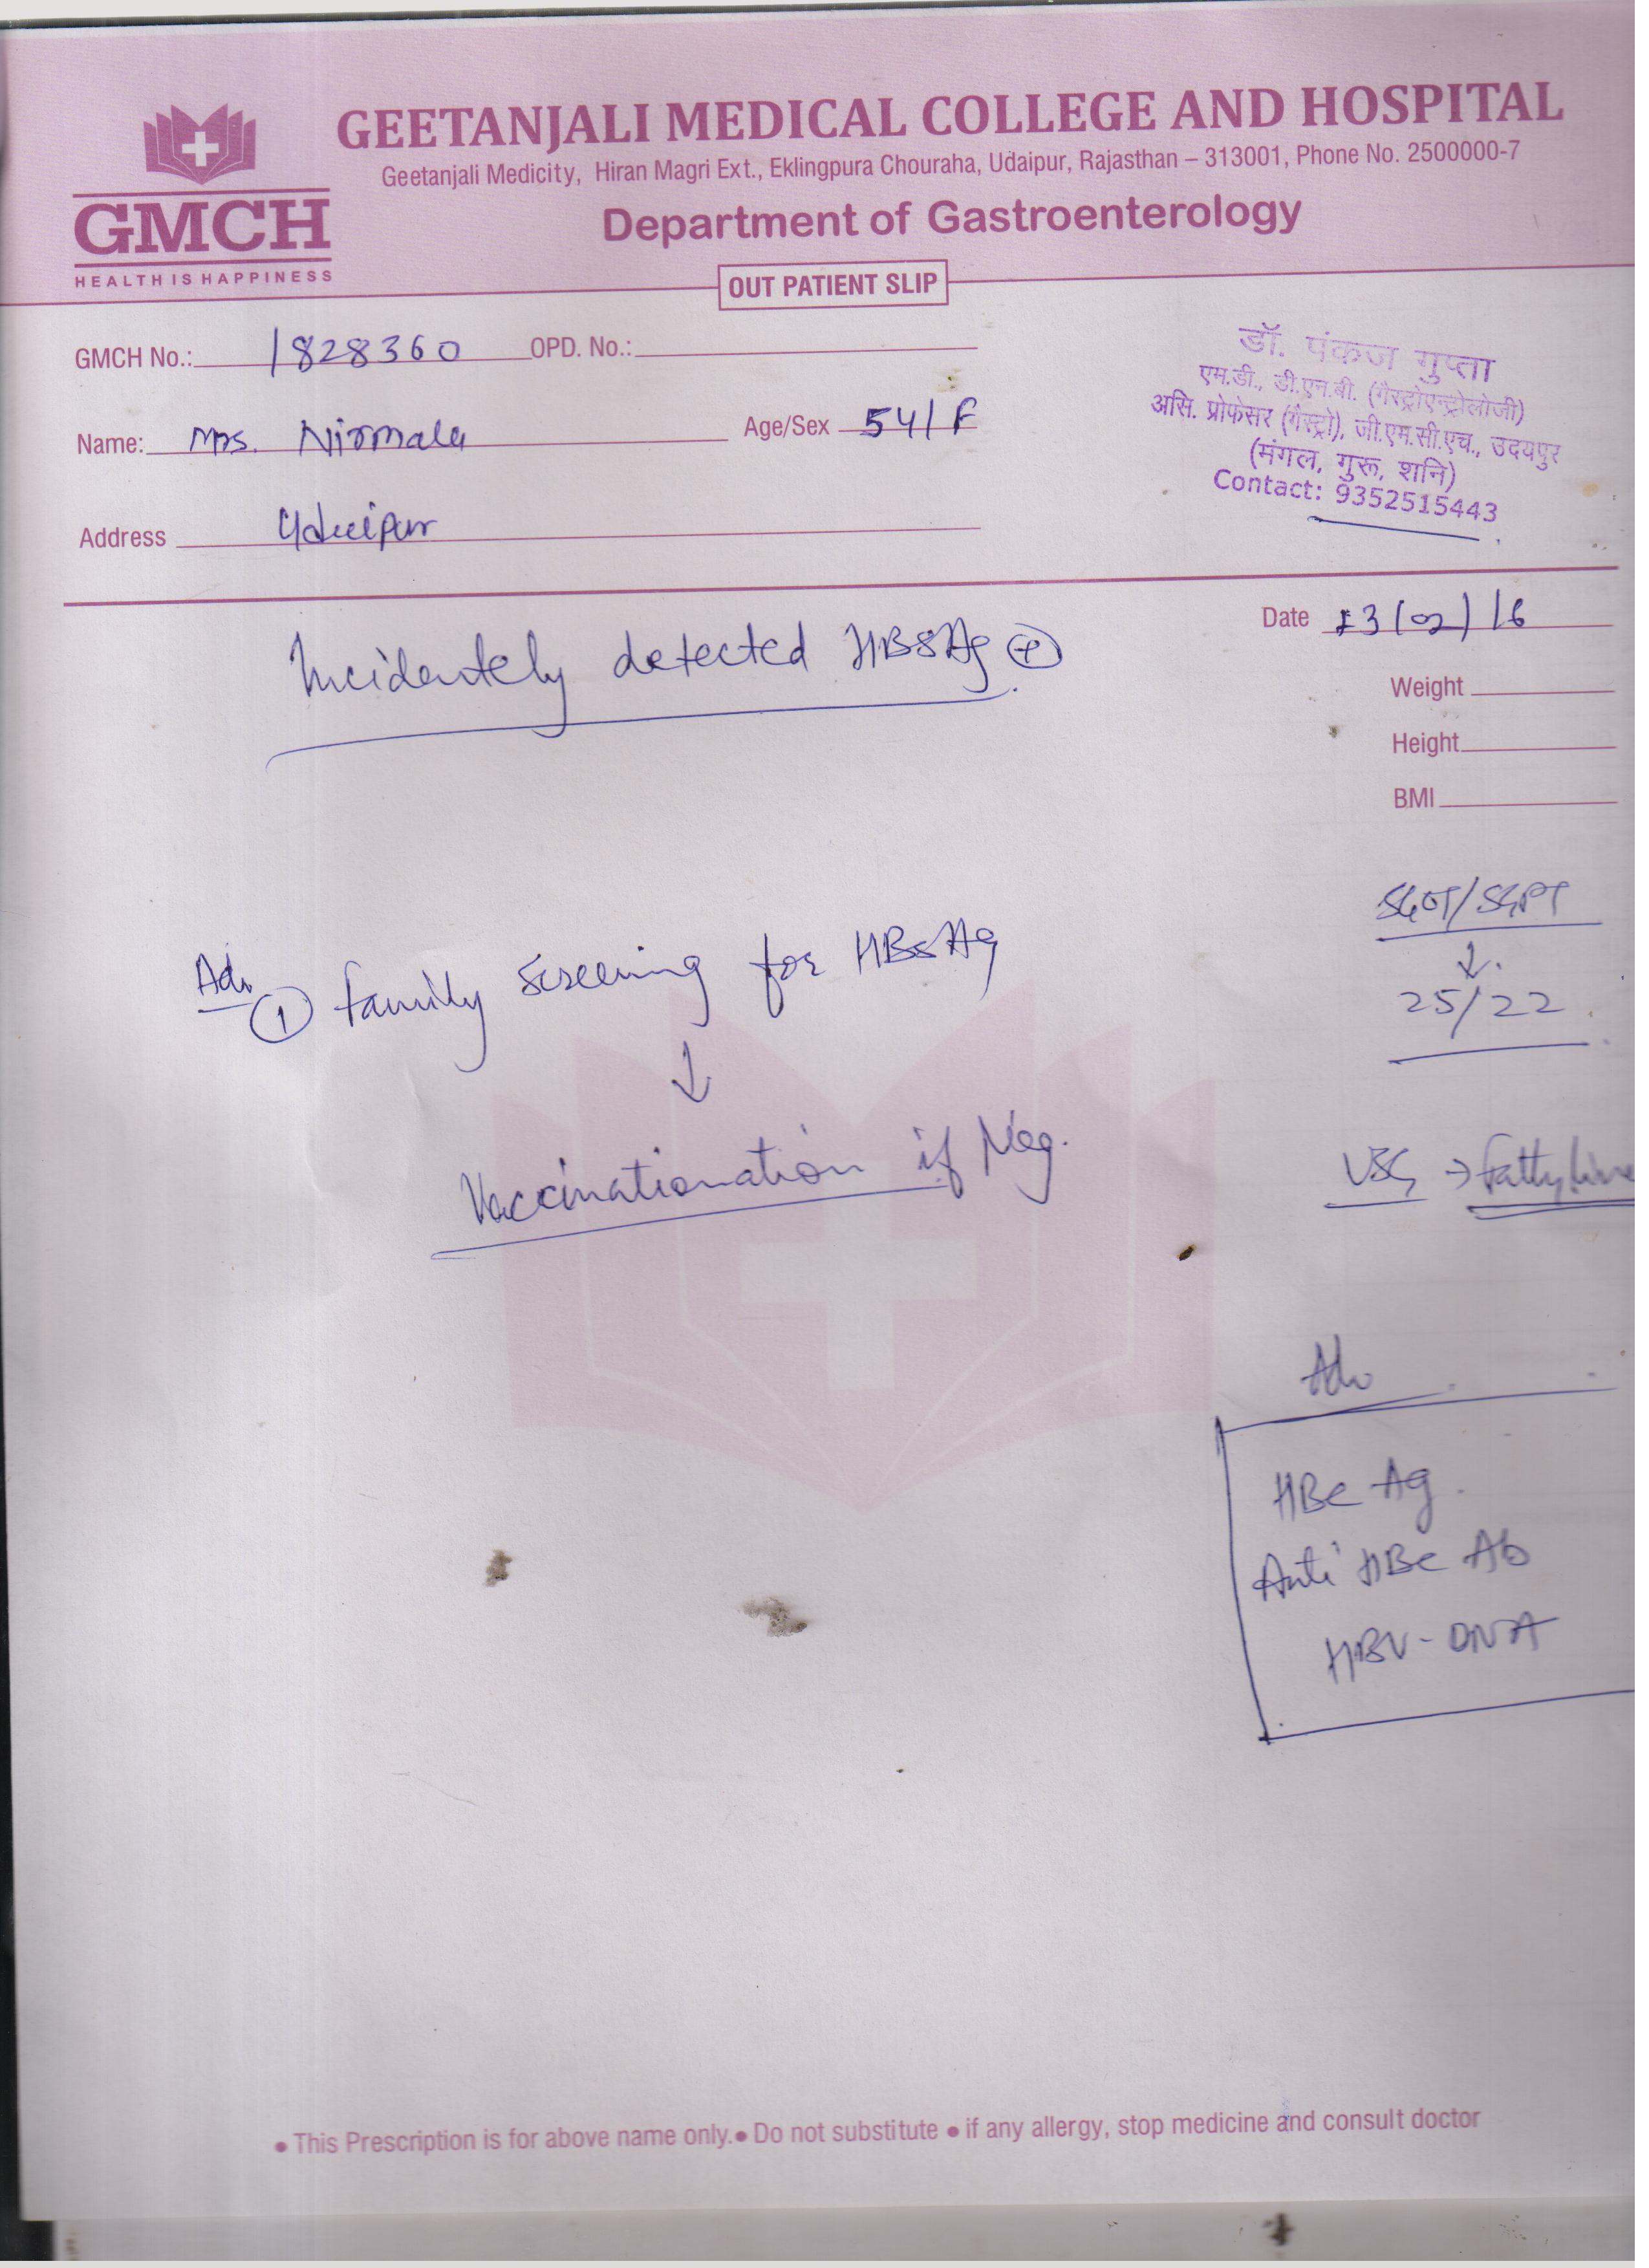 GEETANJALI MEDICAL COLLEGE AND HOSPITAL
Geetanjali Medicity, Hiran Magri Ext., Eklingpura Chouraha, Udaipur, Rajasthan – 313001, Phone No. 2500000-7
GMCH
HEALTH IS HAPPINESS
Department of Gastroenterology
OUT PATIENT SLIP
GMCH No.: 1828360 OPD. No.:
Name: Mrs. Nirmala Age/Sex 54/F
Address Udaipur
डॉ. पंकज गुप्ता
एम.डी., डी.एन.बी. (गैस्ट्रोएन्ट्रोलोजी)
असि. प्रोफेसर (गैस्ट्रो), जी.एम.सी.एच., उदयपुर
(मंगल, गुरू, शनि)
Contact: 9352515443
Date 23/02/16
Weight
Height
BMI
Incidentely detected HBsAg +
SGOT/SGPT
↓
25/22
Adv
1 family screening for HBsAg
↓
Vaccinationation if Neg.
USG → fatty live
Adv
HBe Ag
Anti HBe Ab
HBV-DNA
• This Prescription is for above name only. • Do not substitute • if any allergy, stop medicine and consult doctor